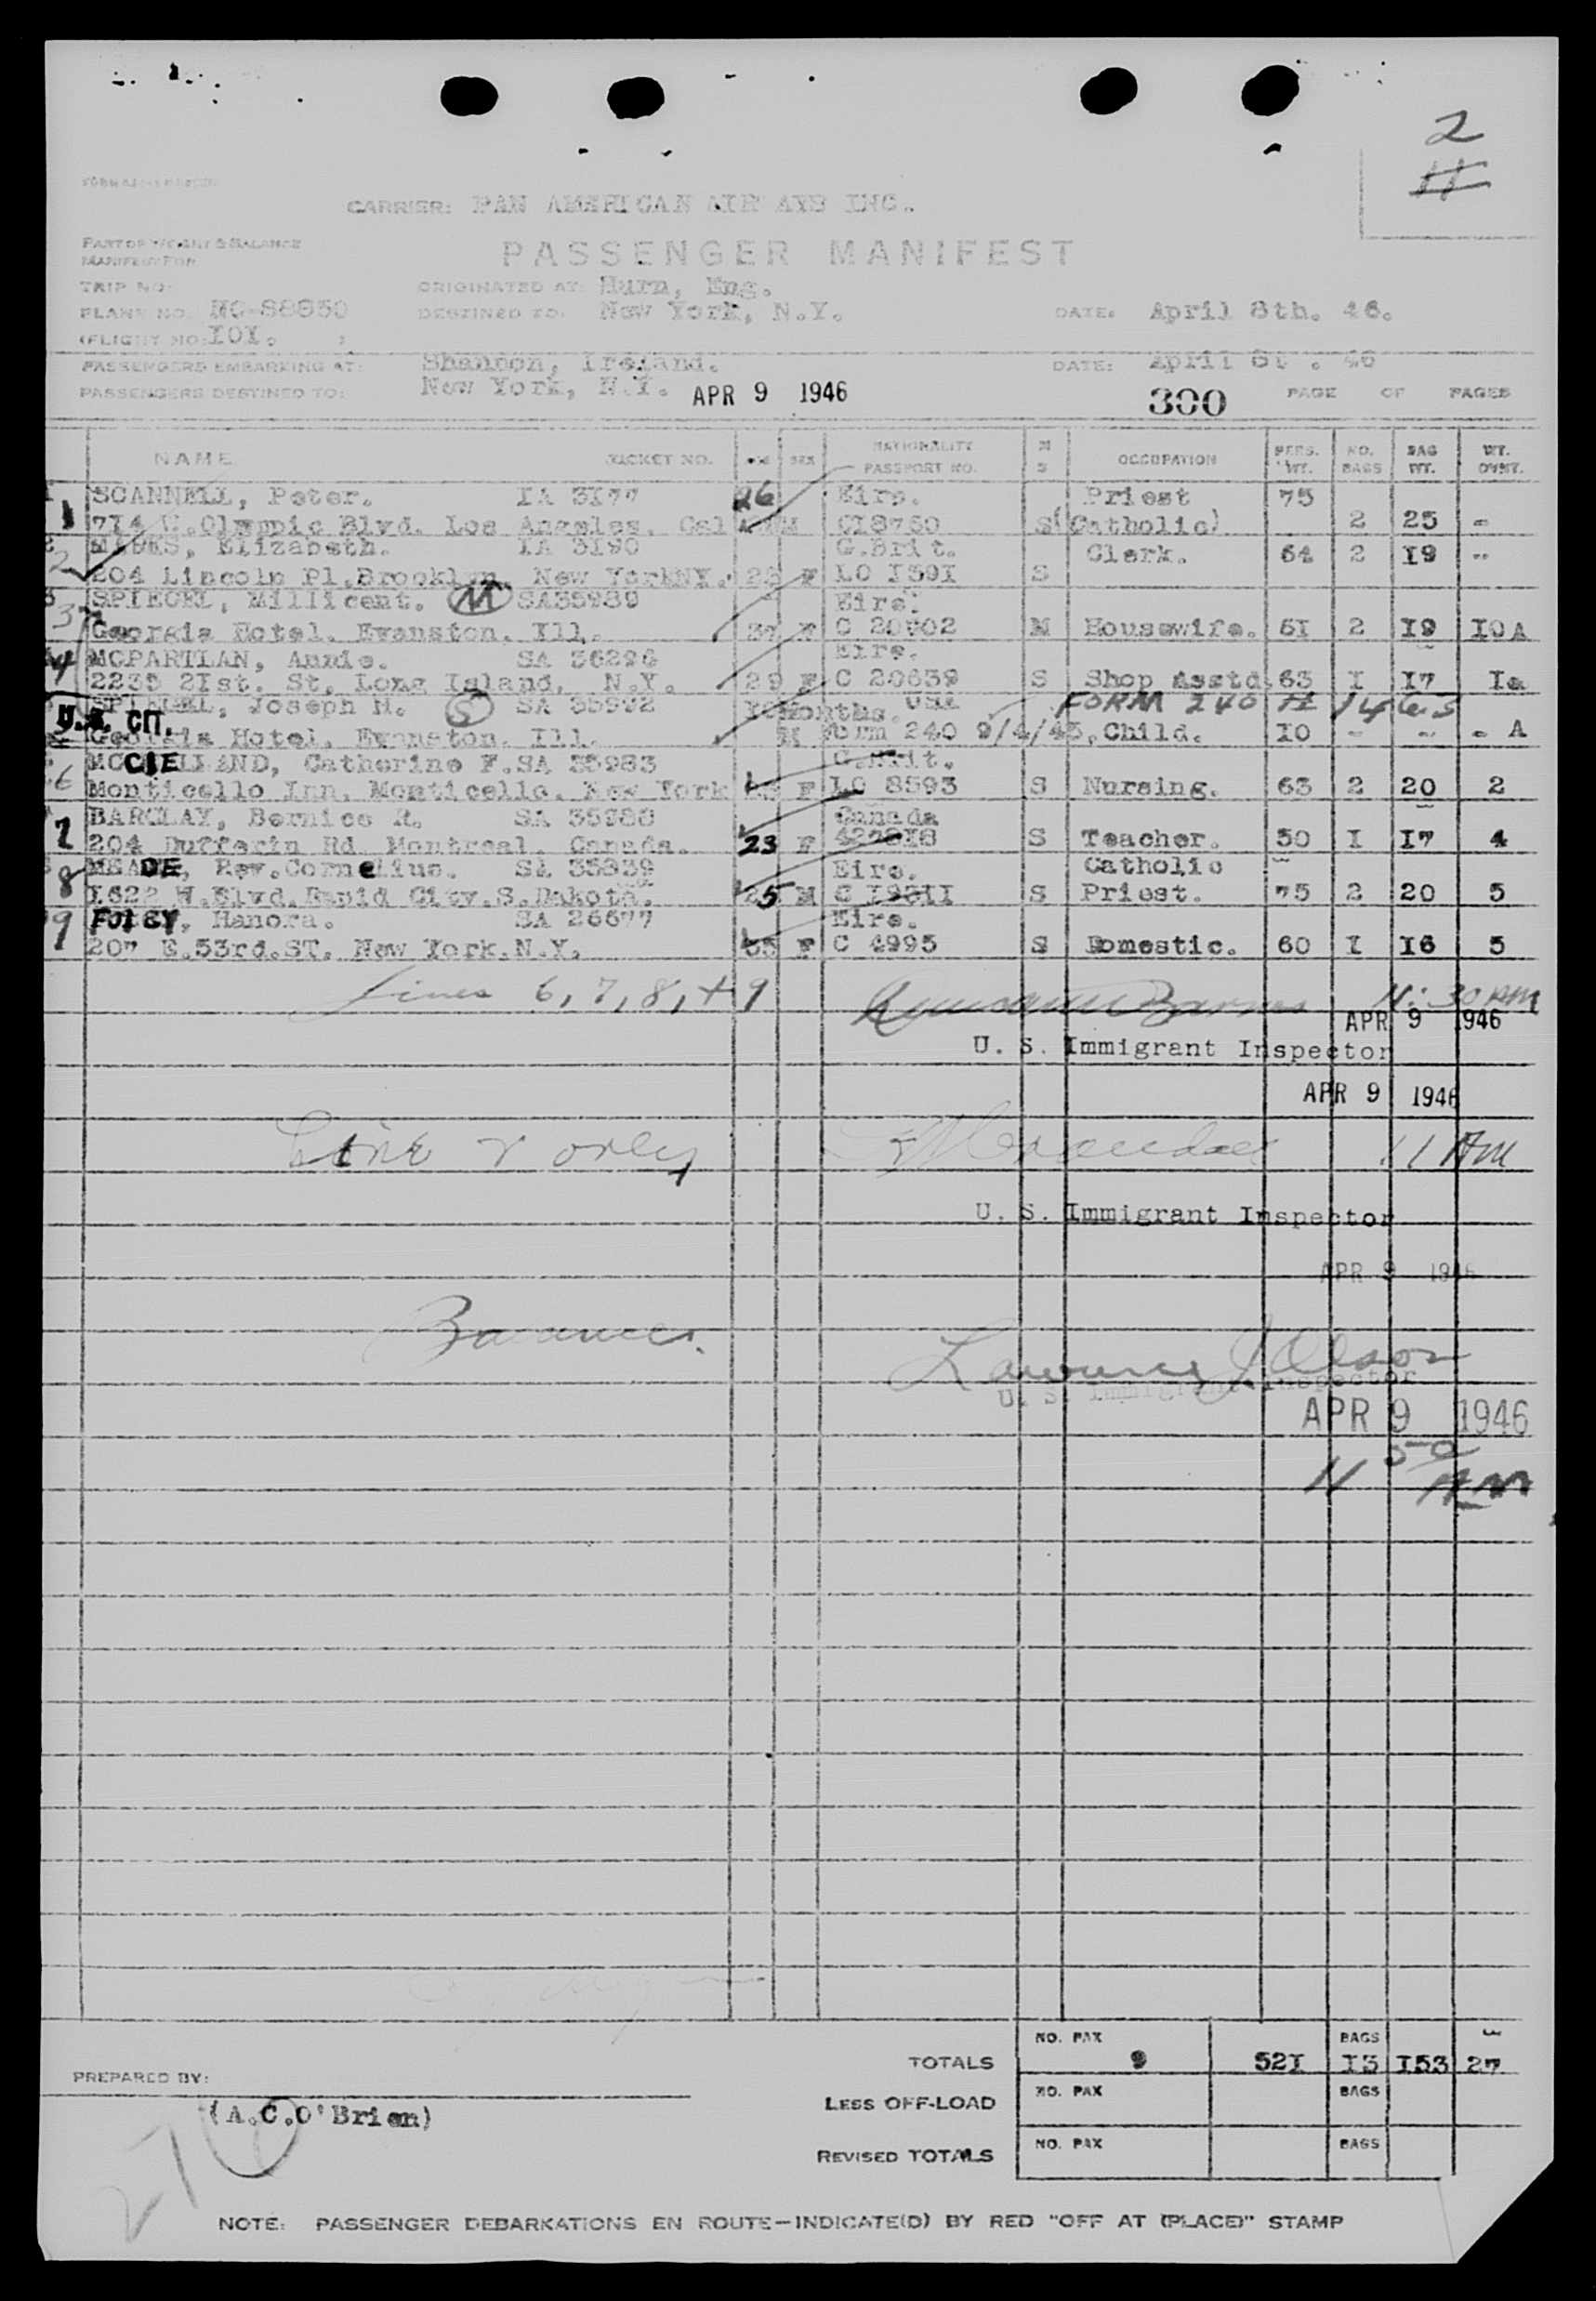 2
11
CARRIER: PAN AMERICAN AIRWAYS INC.
PART OF WEIGHT & BALANCE
MANIFEST FOR
PASSENGER MANIFEST
TRIP NO:
ORIGINATED AT: Hurn, Eng.
PLANE NO. NC-88850 DESTINED TO: New York, N.Y. DATE: April 8th. 46.
(FLIGHT NO: IOI. )
PASSENGERS EMBARKING AT: Shannon, Ireland. DATE: April 8t . 46
PASSENGERS DESTINED TO: New York, N.Y. APR 9 1946 300 PAGE OF PAGES
NAME TICKET NO. SEX NATIONALITY PASSPORT NO. M S OCCUPATION PERS. WT. NO. BAGS BAG WT. WT. OVWT.
1 SCANNELL, Peter. IA 3I77 26 Eire. Priest 75
714 W.Olympic Blvd. Los Angeles. Cal M CI8750 S (Catholic) 2 25 -
2 Elizabeth. IA 3I90 G.Brit. Clerk. 54 2 I9 -
204 Lincoln Pl.Brooklyn. New YorkNY. F LO I39I S
3 SPIEGEL, Millicent. M SA35989 Eire.
Georgia Hotel. Evanston. Ill. F C 20902 M Housewife. 5I 2 I9 IOA
4 MCPARTLAN, Annie. SA 36296 Eire.
2235 2Ist. St. Long Island. N.Y. 29 F C 20639 S Shop Asstd 63 I I7 Ia
SPIEGEL, Joseph M. S SA 35992 IOMonths. USA FORM 240
U.S. CIT. Georgia Hotel. Evanston. Ill. M Form 240 9/4/45, Child. IO - - - A
6 MCCLELLAND, Catherine F.SA 35983 G.Brit.
Monticello Inn. Monticello. New York F LO 8593 S Nursing. 63 2 20 2
7 BARCLAY, Bernice R. SA 35988 Canada
204 Dufferin Rd. Montreal. Canada. 23 F 427818 S Teacher. 50 I I7 4
8 MEADE, Rev.Cornelius. SA 35939 Eire. Catholic
I622 W.Blvd.Rapid City.S.Dakota. 25 M C I93II S Priest. 75 2 20 5
9 FOLEY, Hanora. SA 26677 Eire.
207 E.53rd.ST. New York.N.Y. F C 4995 S Domestic. 60 I I6 5
Lines 6, 7, 8, + 9 Barnes 11:30 AM
APR 9 1946
U. S. Immigrant Inspector
APR 9 1946
Line 2 only 11 AM
U. S. Immigrant Inspector
APR 9 1946
Balance. Lawrence J Olson
U. S. Immigrant Inspector
APR 9 1946
11 50 AM
TOTALS NO. PAX 9 52I BAGS I3 I53 27
PREPARED BY:
LESS OFF-LOAD NO. PAX BAGS
(A.C.O'Brien)
REVISED TOTALS NO. PAX BAGS
NOTE: PASSENGER DEBARKATIONS EN ROUTE—INDICATE(D) BY RED "OFF AT (PLACE)" STAMP